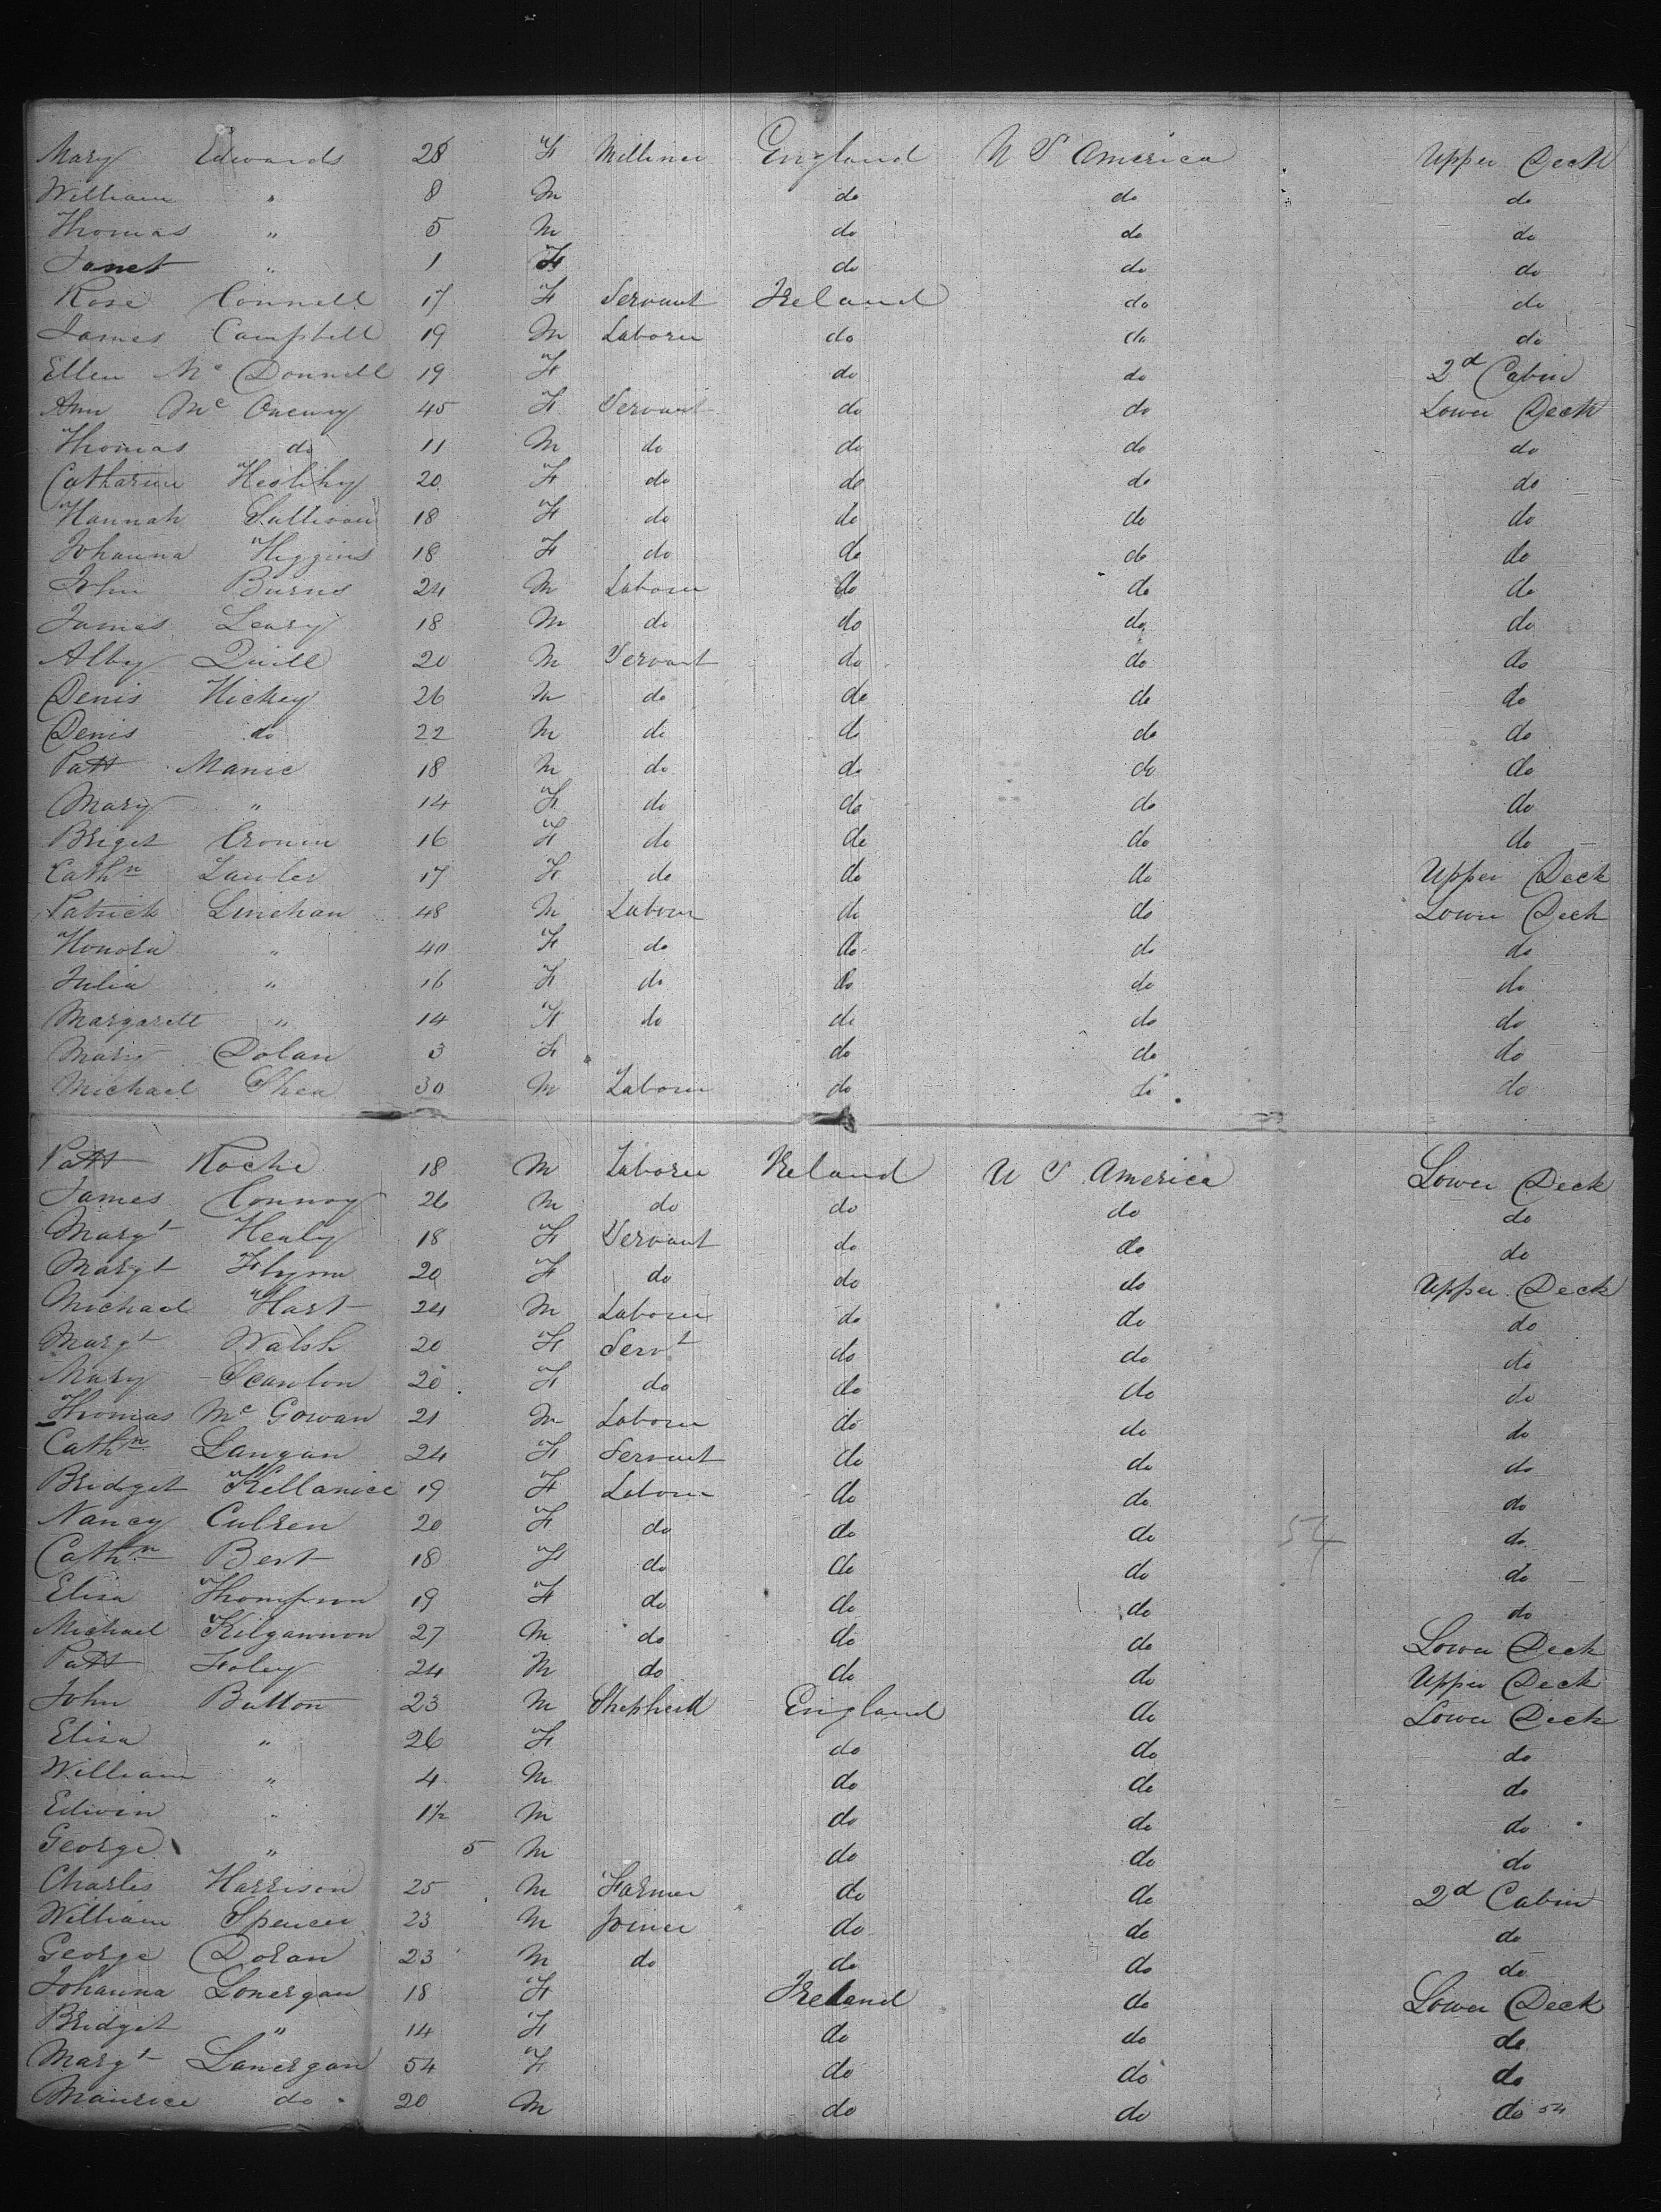 Mary Edwards 28 F Milliner England U S America Upper Deck
William " 8 M do do do
Thomas " 5 M do do do
Janet " 1 F do do do
Rose Connell 17 F Servant Ireland do do
James Campbell 19 M Laborer do do do
Ellen Mc Donnell 19 F do do 2d Cabin
Ann Mc 45 F Servant do do Lower Deck
Thomas do 11 M do do do do
Catharine Heslihy 20 F do do do do
Hannah Sullivan 18 F do do do do
Johanna Higgins 18 F do do do do
John Burns 24 M Laborer do do do
James Leary 18 M do do do do
Alby Quill 20 M Servant do do do
Denis Hickey 26 M do do do do
Denis do 22 M do do do do
Patt Manie 18 M do do do do
Mary " 14 F do do do do
Briget Cronin 16 F do do do do
Cathn Lawler 17 F do do do Upper Deck
Patrick Linehan 48 M Laborer do do Lower Deck
Honora " 40 F do do do do
Julia " 16 F do do do do
Margarett " 14 F do do do do
Mary Dolan 3 F do do do
Michael Shea 30 M Laborer do do do
Patt Roche 18 M Laborer Ireland U S America Lower Deck
James Connoy 26 M do do do do
Margt Healy 18 F Servant do do do
Margt Flynn 20 F do do do Upper Deck
Michael Hart 24 M Laborer do do do
Margt Walsh 20 F Servt do do do
Mary Scanlon 20 F do do do do
Thomas Mc Gowan 21 M Laborer do do do
Cathn Langan 24 F Servant do do do
Bridget Killanice 19 F Laborer do do do
Nancy Culren 20 F do do do 54 do
Cathn Bert 18 F do do do do
Eliza Thompson 19 F do do do do
Michael Kilgannon 27 M do do do Lower Deck
Patt Foley 24 M do do do Upper Deck
John Button 23 M Shepherd England do Lower Deck
Eliza " 26 F do do do
William " 4 M do do do
Edwin " 1½ M do do do
George " 5 M do do do
Charles Harrison 25 M Farmer do do 2d Cabin
William Spencer 23 M Joiner do do do
George Doran 23 M do do do do
Johanna Lonergan 18 F Ireland do Lower Deck
Bridget " 14 F do do do
Margt Lanergan 54 F do do do
Maurice do 20 M do do do 54